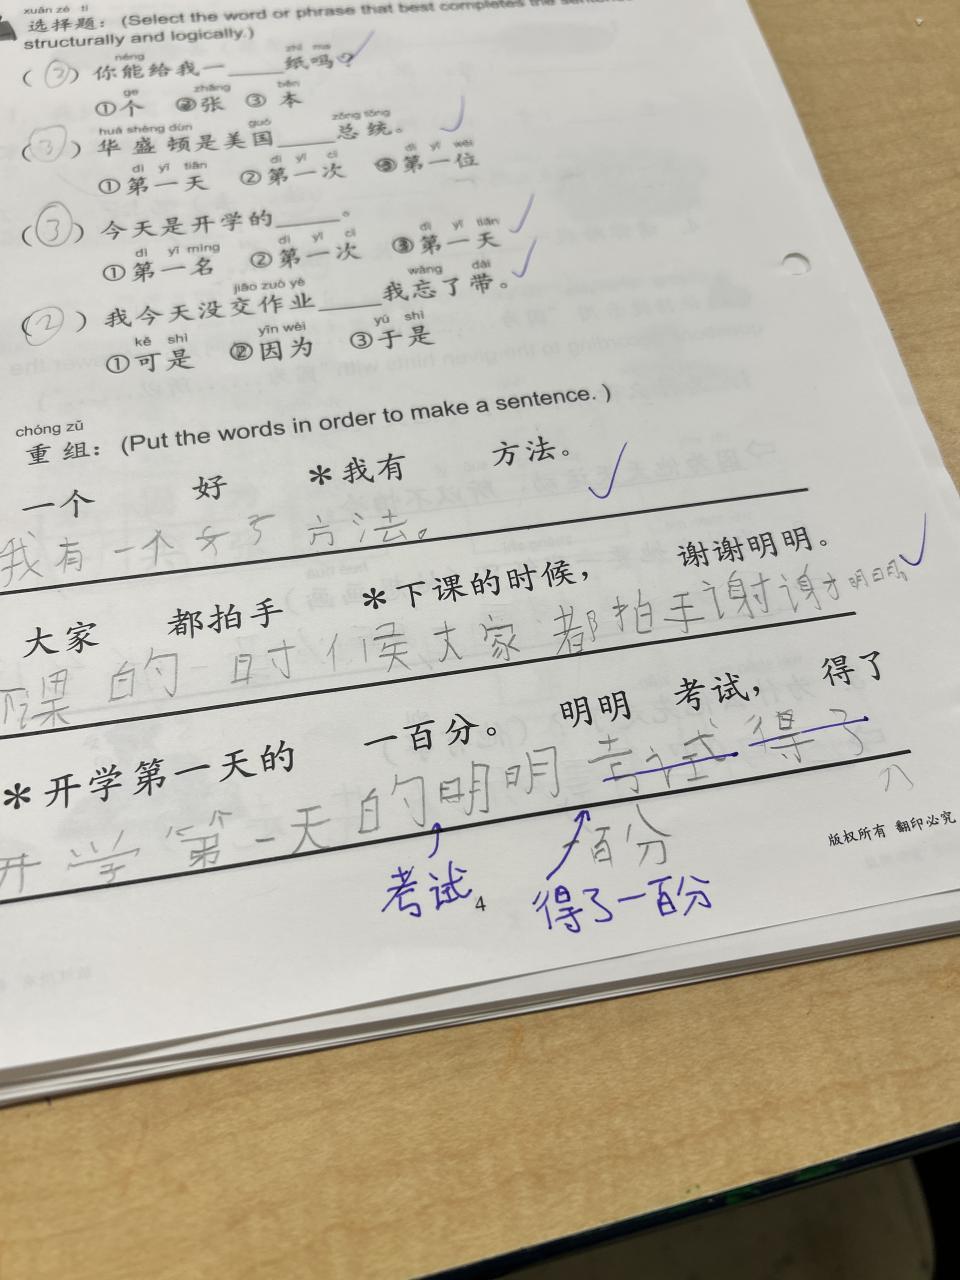 xuǎn zé tí
选择题：(Select the word or phrase that best completes the sentence
structurally and logically.)
néng zhǐ ma
(②) 你能给我一____纸吗？
ge zhāng běn
①个 ②张 ③本
huá shèng dùn guó zǒng tǒng
(3) 华盛顿是美国____总统。
dì yī tiān dì yī cì dì yī wèi
①第一天 ②第一次 ③第一位
(③) 今天是开学的____。
dì yī míng dì yī cì dì yī tiān
①第一名 ②第一次 ③第一天
jiāo zuò yè wàng dài
(②) 我今天没交作业____我忘了带。
kě shì yīn wèi yú shì
①可是 ②因为 ③于是
chóng zǔ
重组：(Put the words in order to make a sentence. )
一个 好 *我有 方法。
我有一个好方法。
大家 都拍手 *下课的时候， 谢谢明明。
下课的时候大家都拍手谢谢明明。
*开学第一天的 一百分。 明明 考试， 得了
开学第一天的明明考试得了
一百分
考试 得了一百分
4
版权所有 翻印必究